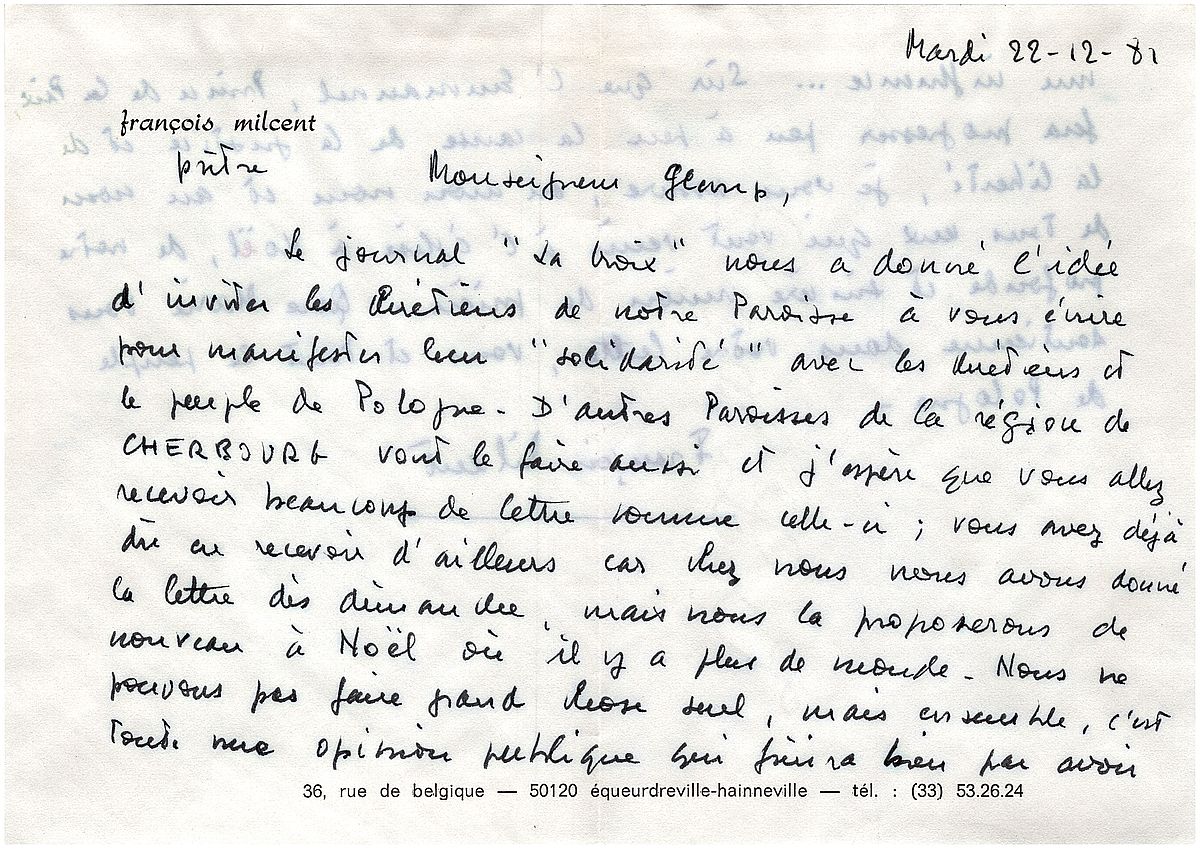 Mardi 22-12-81
françois milcent
prêtre
Monseigneur Glemp,
Le journal "La Croix" nous a donné l'idée
d'inviter les chrétiens de notre Paroisse à vous écrire
pour manifester leur "solidarité" avec les chrétiens et
le peuple de Pologne - D'autres Paroisses de la région de
CHERBOURG vont le faire aussi et j'espère que vous allez
recevoir beaucoup de lettre comme celle-ci ; vous avez déjà
dû en recevoir d'ailleurs car chez nous nous avons donné
la lettre dès dimanche, mais nous la proposerons de
nouveau à Noël où il y a plus de monde - Nous ne
pouvons pas faire grand chose seul, mais ensemble, c'est
toute une opinion publique qui finira bien par avoir
36, rue de belgique — 50120 équeurdreville-hainneville — tél. : (33) 53.26.24